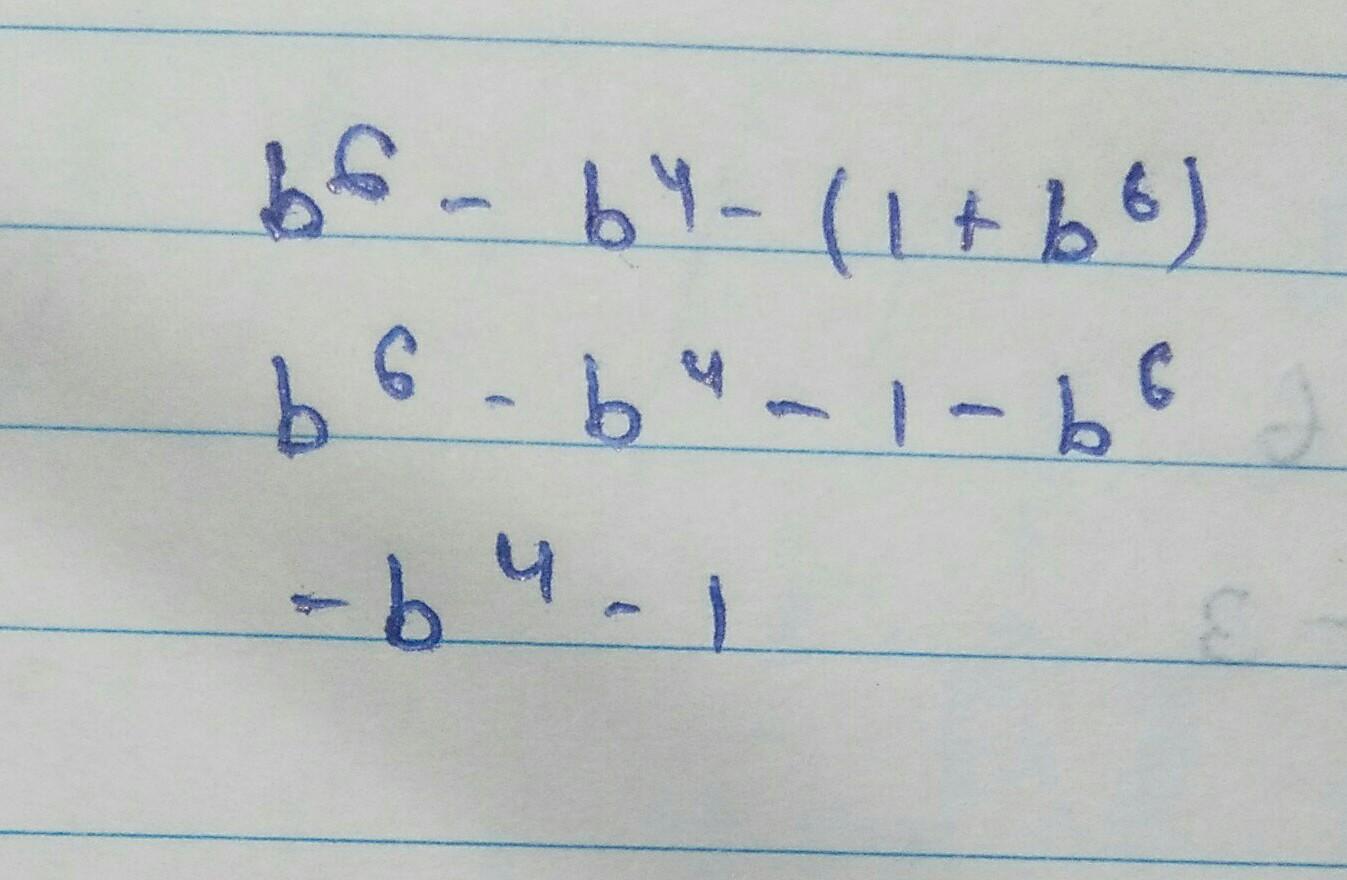 b⁶ - b⁴ - (1 + b⁶)
b⁶ - b⁴ - 1 - b⁶
- b⁴ - 1